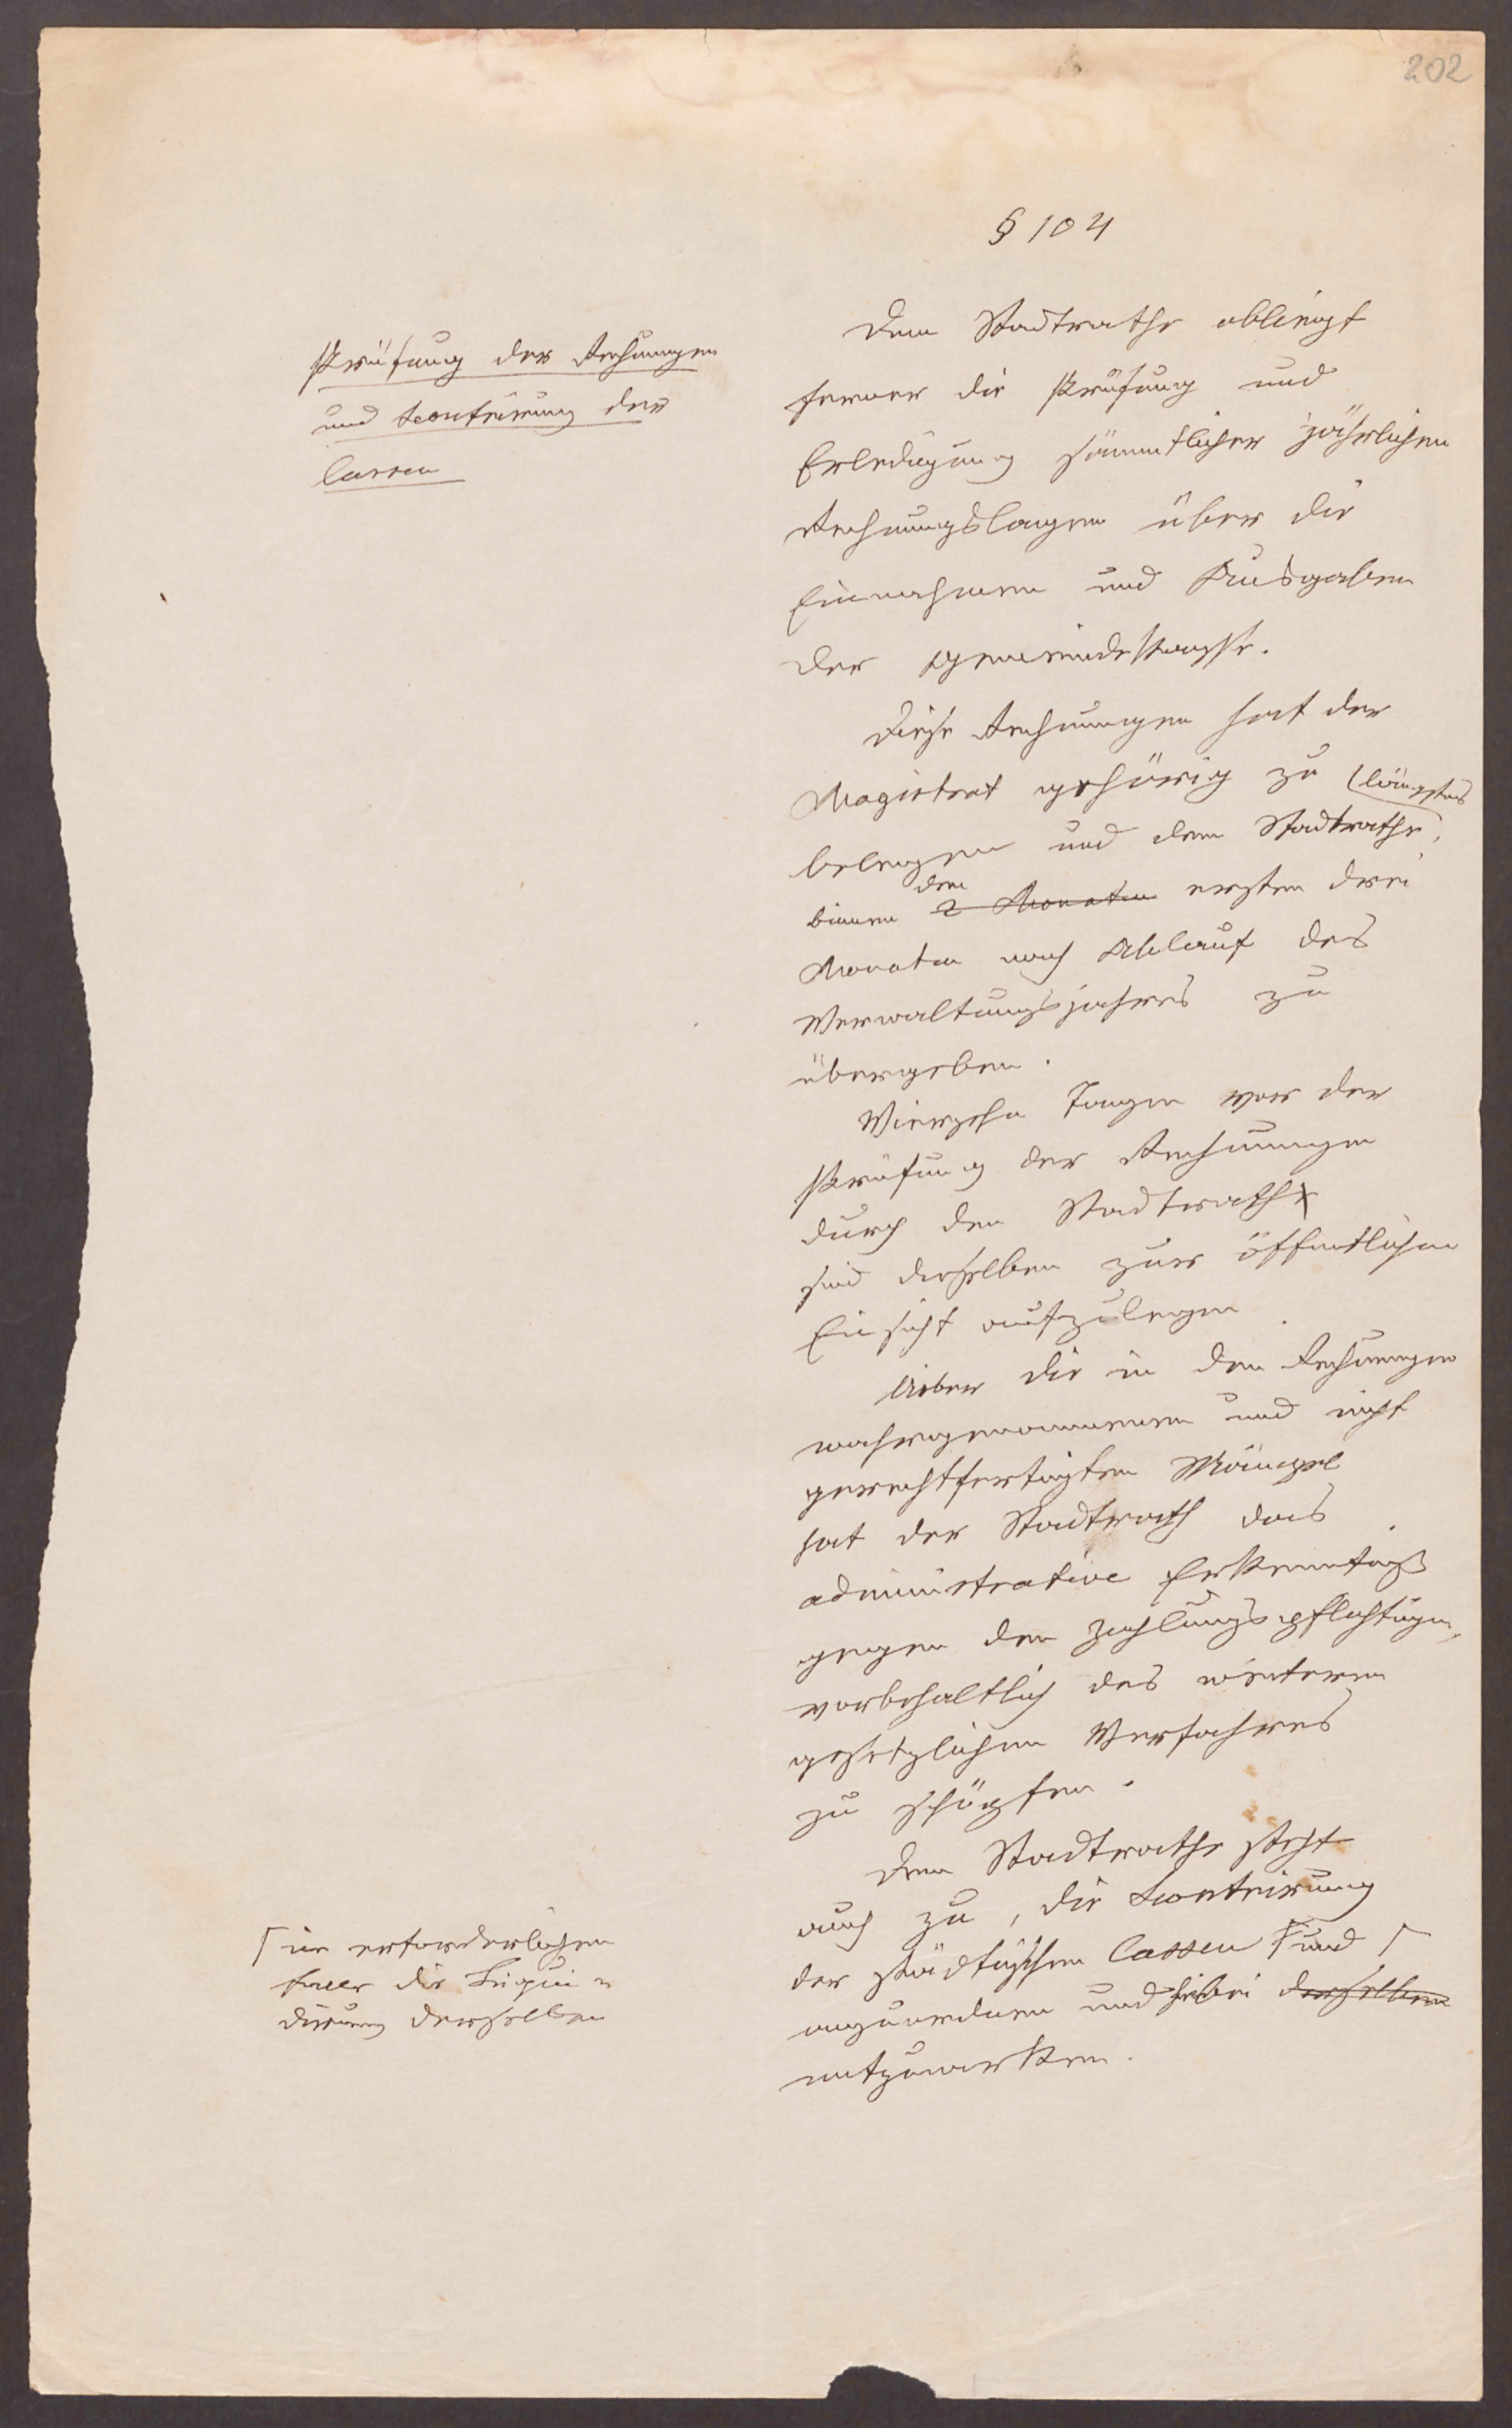 202
§ 104
Prüfung der Rechnungen
und Scontrirung der
Cassen
Dem Stadtrathe obliegt
ferner die Prüfung und
Erledigung sämmtlicher jährlichen
Rechnungslagen über die
Einnahmen und Ausgaben
der Gemeindekasse.
Diese Rechnungen hat der
Magistrat gehörig zu
belegen und dem Stadtrathe, längstens
binnen den 2 Monaten ersten drei
Monaten nach Ablauf des
Verwaltungsjahres zu
übergeben.
Vierzehn Tagen vor der
Prüfung der Rechnungen
durch den Stadtrath
sind dieselben zur öffentlichen
Einsicht aufzulegen
Ueber die in den Rechnungen
wahrgenommenen und nicht
gerechtfertigten Mängel
hat der Stadtrath das
administrative Erkenntniß
gegen den Zahlungspflichtigen,
vorbehaltlich des weiteren
gesetzlichen Verfahrens
zu schöpfen.
Dem Stadtrathe steht
auch zu, die Scontrirung
der städtischen Cassen und
anzuordnen und hiebei derselben
mitzuwirken.
im erforderlichen
Falle die Liqui-
dirung derselben